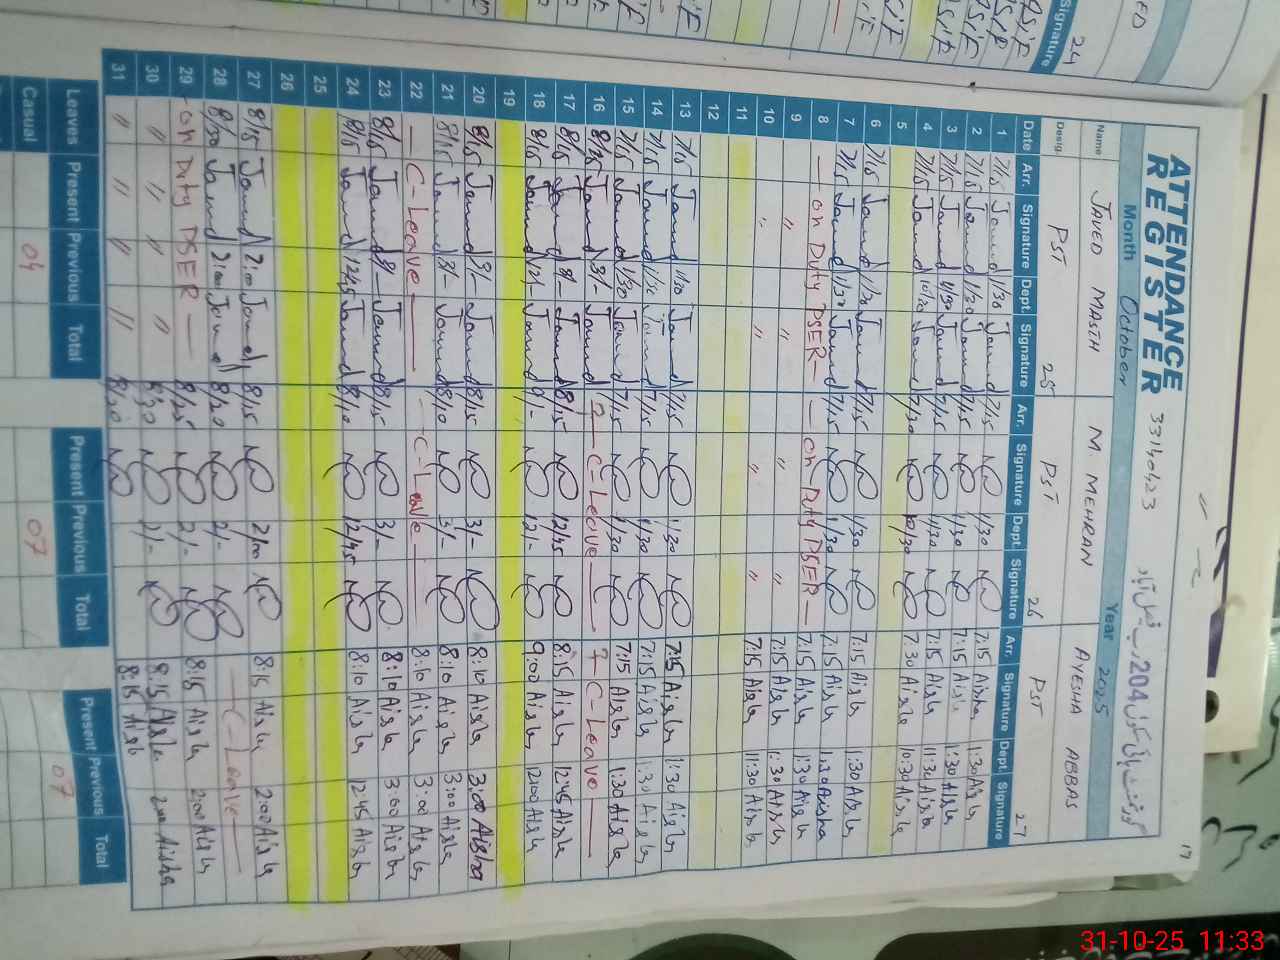 17
ATTENDANCE
REGISTER
33140423
204
Month October Year 2025
Name JAVED MASIH M. MEHRAN AYESHA ABBAS
Desig. PST 25 PST 26 PST 27
Date Arr. Signature Dept. Signature Arr. Signature Dept. Signature Arr. Signature Dept. Signature
1 7/15 Javed 1/30 Javed 7/15 1/30 7:15 Aisha 1:30 Aisha
2 7/15 Javed 1/30 Javed 7/15 1/30 7:15 Aisha 1:30 Aisha
3 7/15 Javed 1/30 Javed 7/15 1/30 7:15 Aisha 11:30 Aisha
4 7/15 Javed 10/30 Javed 7/30 10/30 7:30 Aisha 10:30 Aisha
5
6 7/15 Javed 1/30 Javed 7/15 1/30 7:15 Aisha 1:30 Aisha
7 7/15 Javed 1/30 Javed 7/15 1/30 7:15 Aisha 1:30 Aisha
8 — on Duty PSER — — on Duty PSER — 7:15 Aisha 1:30 Aisha
9 " " " " 7:15 Aisha 1:30 Aisha
10 " " " " 7:15 Aisha 11:30 Aisha
11
12
13 7/15 Javed 1/30 Javed 7/15 1/30 7:15 Aisha 1:30 Aisha
14 7/15 Javed 1/30 Javed 7/15 1/30 7:15 Aisha 1:30 Aisha
15 7/15 Javed 1/30 Javed 7/15 1/30 7:15 Aisha 1:30 Aisha
16 8/25 Javed 3/- Javed — C-Leave — — C-Leave —
17 8/15 Javed 3/- Javed 8/15 12/45 8:15 Aisha 12:45 Aisha
18 8/15 Javed 12/- Javed 9/- 12/- 9:00 Aisha 12:00 Aisha
19
20 8/15 Javed 3/- Javed 8/15 3/- 8:10 Aisha 3:00 Aisha
21 8/15 Javed 3/- Javed 8/10 3/- 8:10 Aisha 3:00 Aisha
22 — C-Leave — — C-Leave — 8:10 Aisha 3:00 Aisha
23 8/15 Javed 3/- Javed 8/15 3/- 8:10 Aisha 3:00 Aisha
24 8/15 Javed 12/45 Javed 8/10 12/45 8:10 Aisha 12:45 Aisha
25
26
27 8/15 Javed 2:00 Javed 8/15 2/00 8:15 Aisha 2:00 Aisha
28 8/20 Javed 2:00 Javed 8/20 2/- — C-Leave —
29 — on Duty PSER — 8/25 2/- 8:15 Aisha 2:00 Aisha
30 " " " " 8/20 2/- 8:15 Aisha 2:00 Aisha
31 " " " " 8/20 8:15 Aisha
Leaves Present Previous Total Present Previous Total Present Previous Total
Casual 04 07 07
Signature
24
31-10-25 11:33